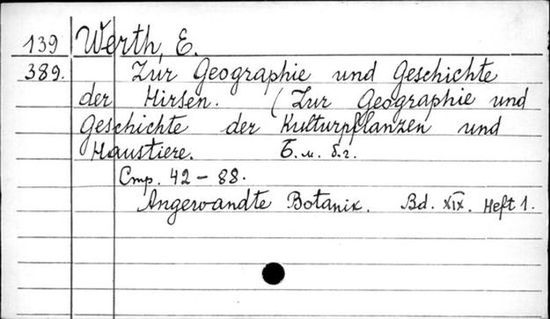 139 Werth, E.
389. Zur Geographie und Geschichte
der Hirsen. (Zur Geographie und
Geschichte der Kulturpflanzen und
Haustiere. Б.м. б.г.
Стр. 42 - 88.
Angewandte Botanik. Bd. XIX. Heft 1.